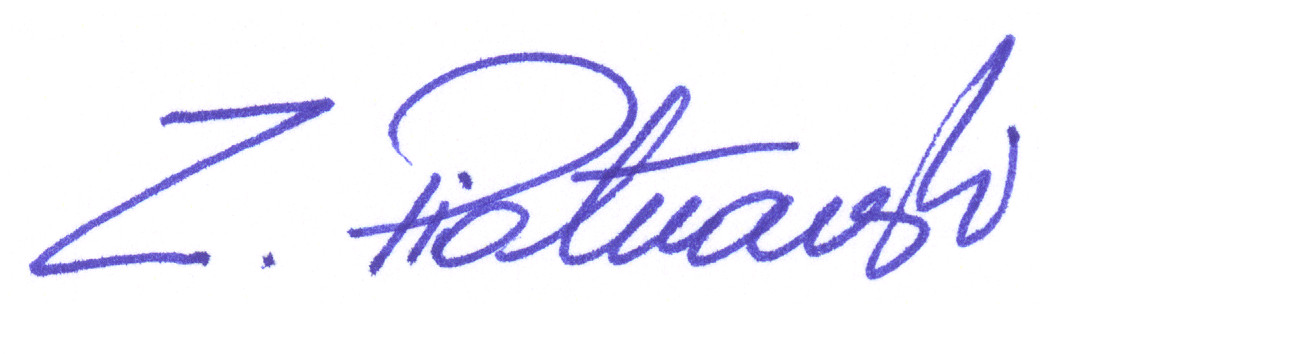 Z. Piotrowski